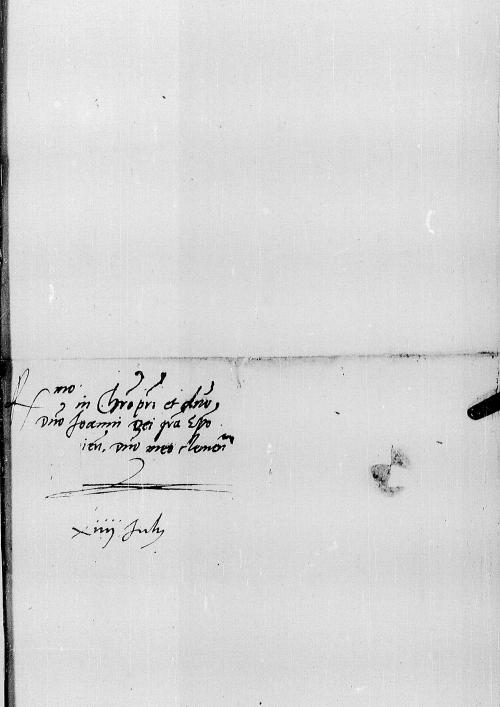 R mo in Chro pri et dno
dno Joanni Dei gra Epo
ien. dno meo clemenmo
xiiij July